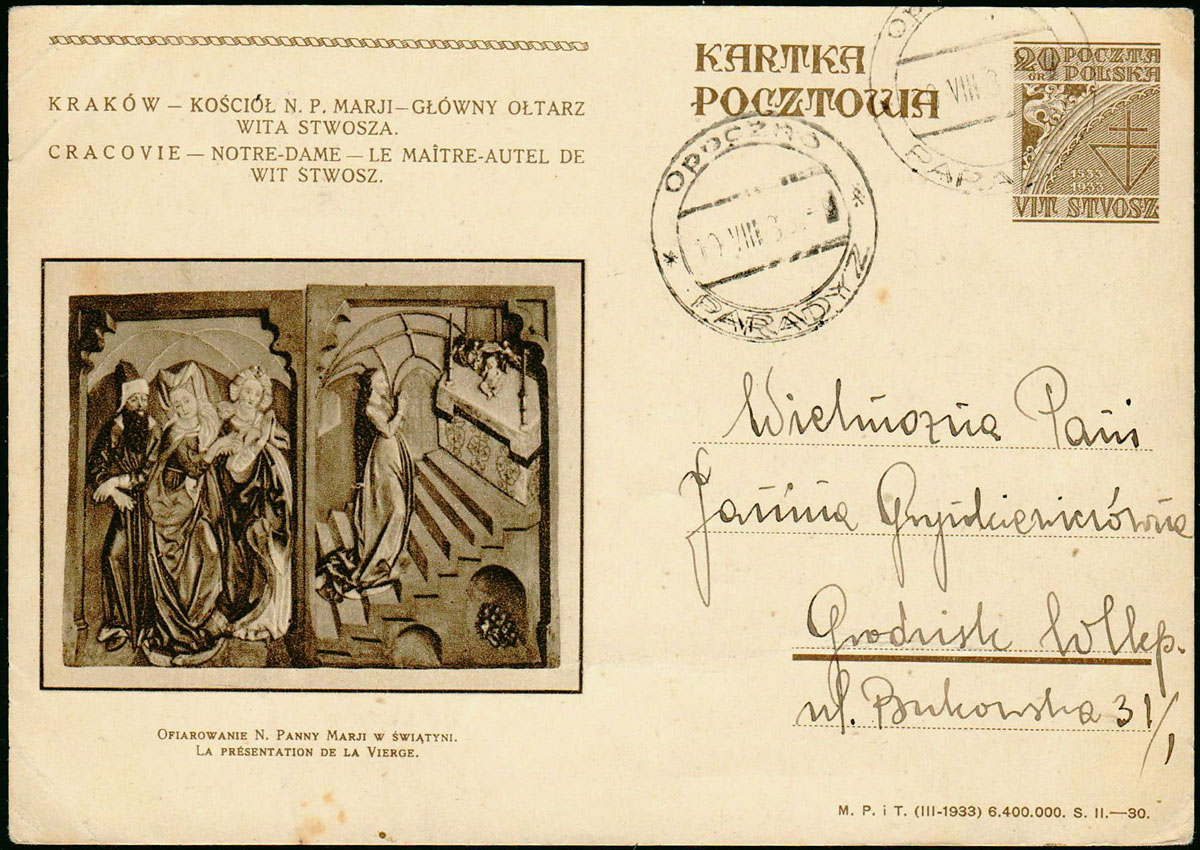 KRAKÓW — KOŚCIÓŁ N. P. MARJI — GŁÓWNY OŁTARZ
WITA STWOSZA.
CRACOVIE — NOTRE-DAME — LE MAÎTRE-AUTEL DE
WIT STWOSZ.
OFIAROWANIE N. PANNY MARJI W ŚWIĄTYNI.
LA PRÉSENTATION DE LA VIERGE.
KARTKA
POCZTOWA
20 POCZTA
GR. POLSKA
1533
1933
VIT STVOSZ
VIII
PARA
OPOCZNO
VIII
* PARADYZ *
Wielmożna Pani
Janina
Grodzisk Wlkp.
ul. Bukowska 31/1
M. P. i T. (III-1933) 6.400.000. S. II.—30.